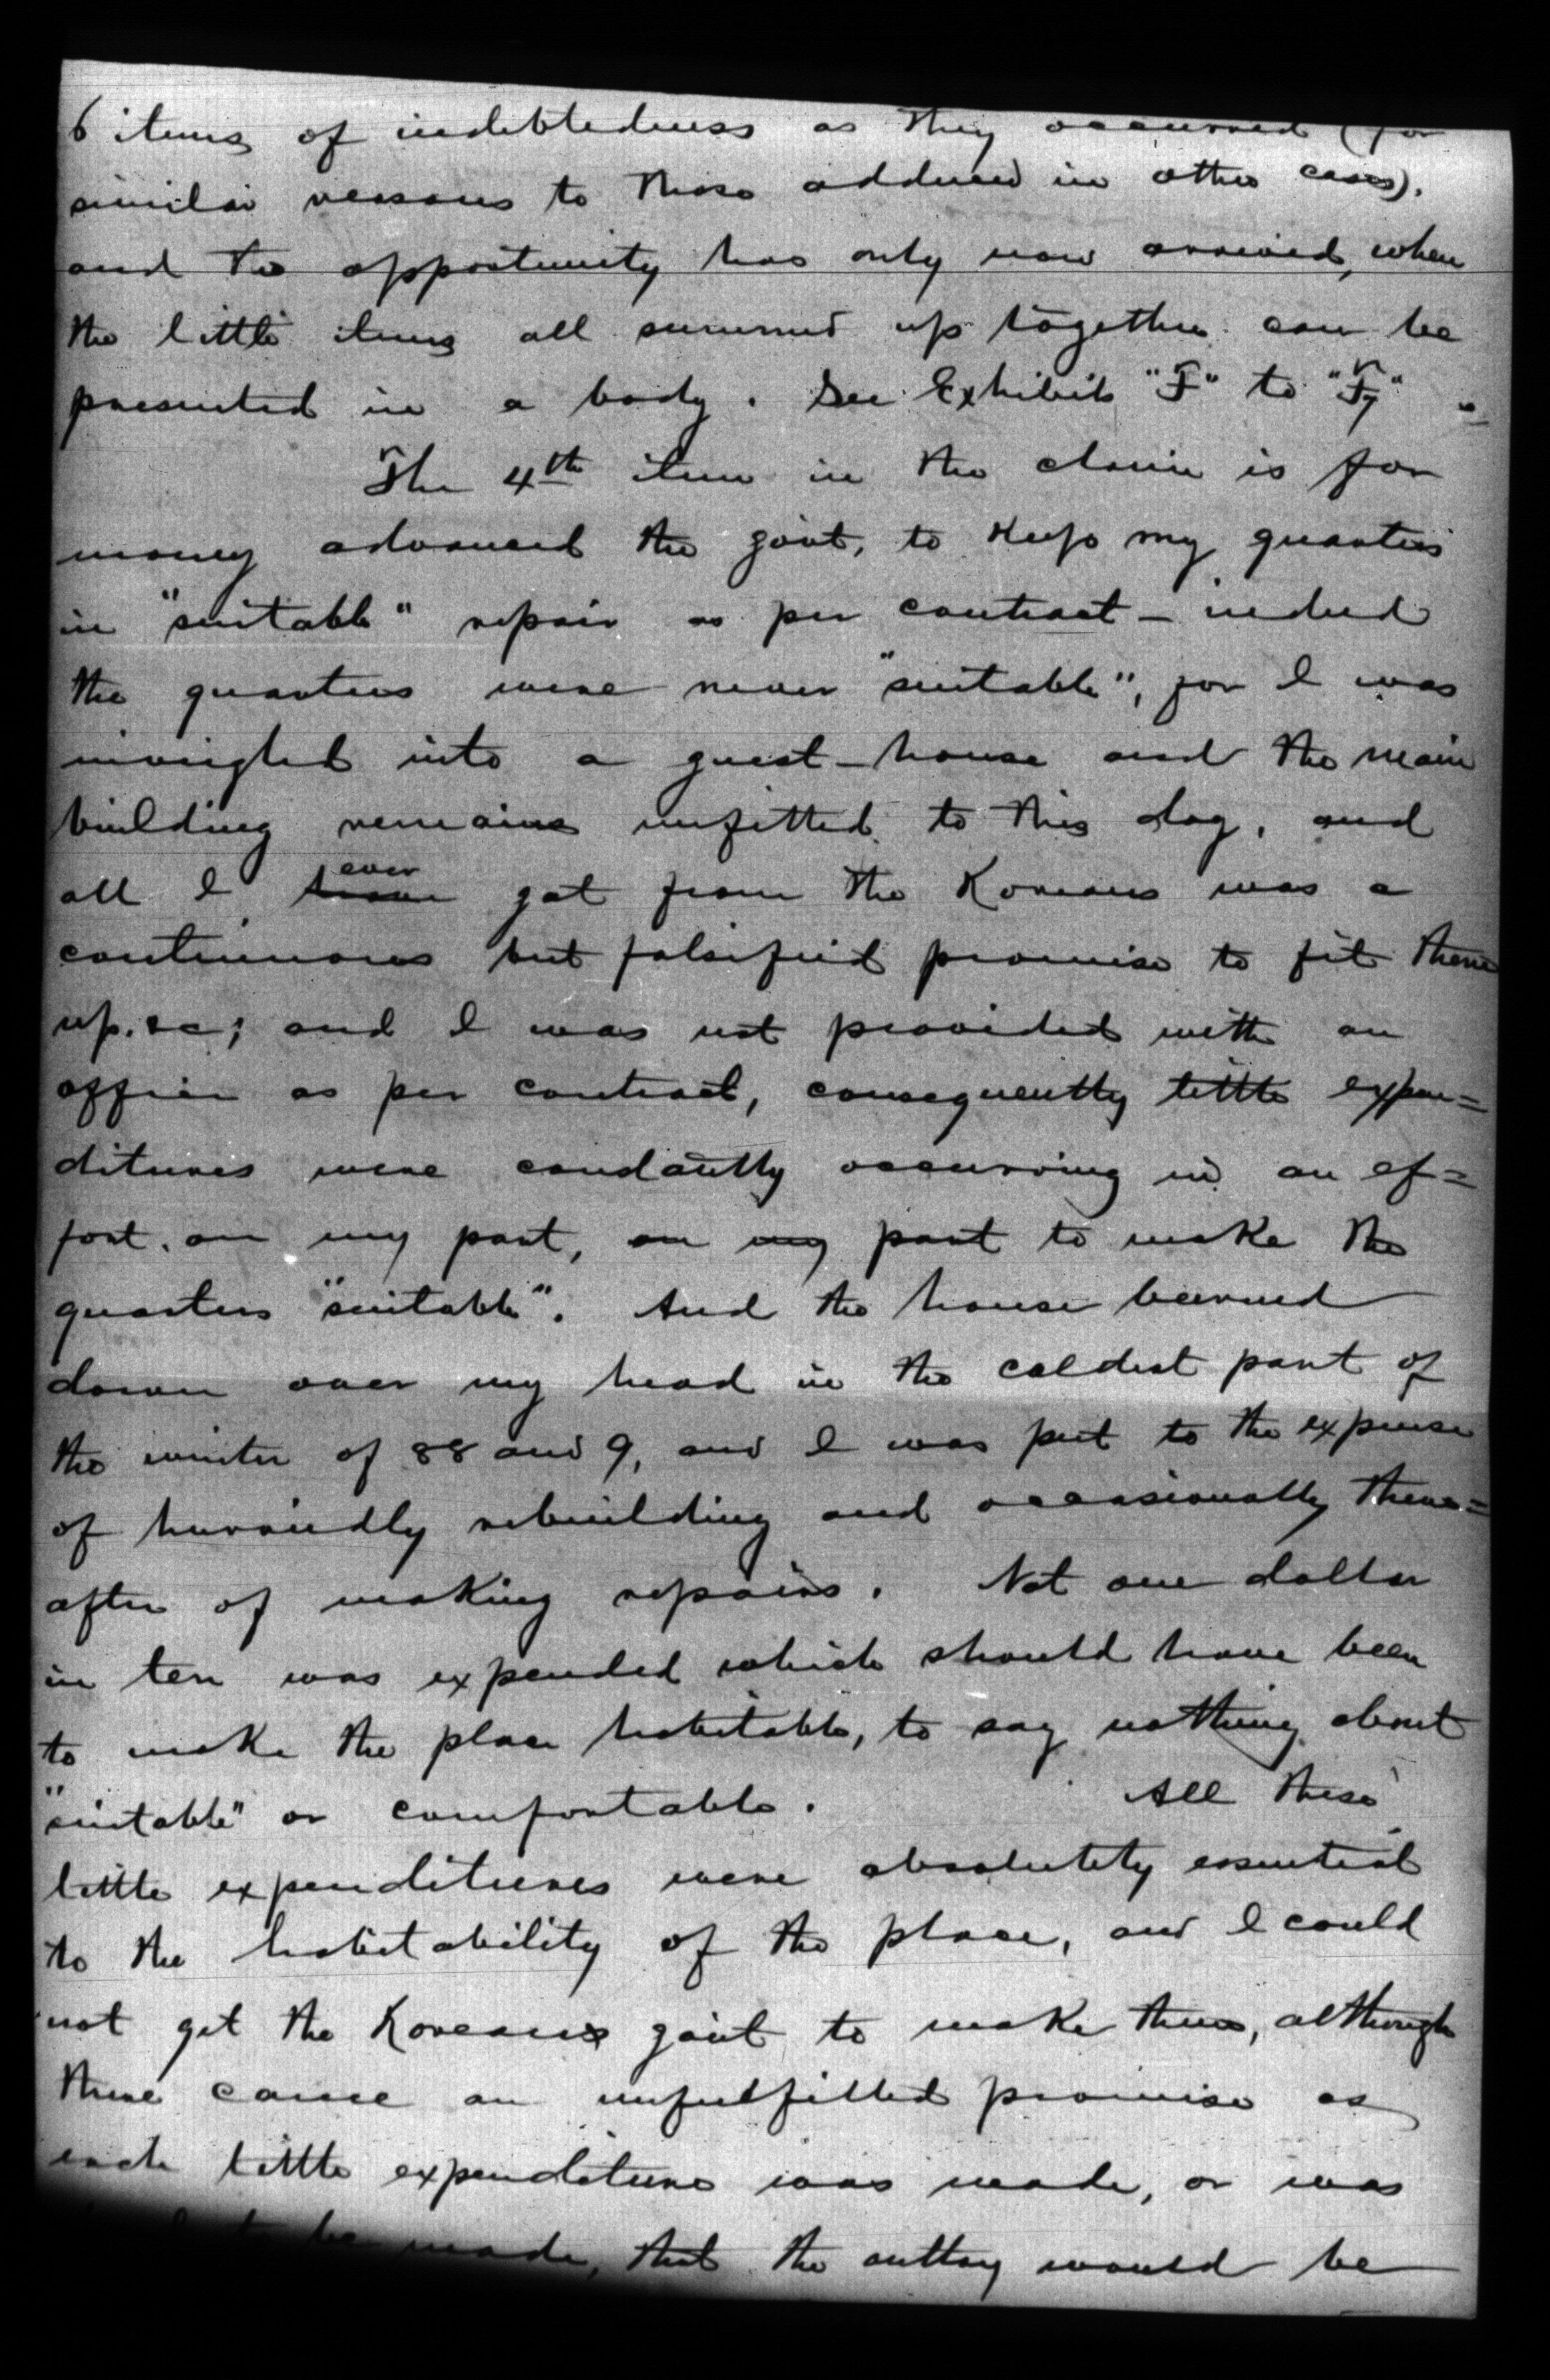 6 items of indebtedness as they occurred (for
similar reasons to those adduced in other cases).
and the opportunity has only now arrived, when
the little items all summed up together can be
presented in a body. See Exhibits "F" to "F7"
The 4th item in the claim is for
money advanced the gov't, to keep my quarters
in "suitable" repair as per contract – indeed
the quarters were never "suitable", for I was
inveigled into a guest-house and the main
building remains unfitted to this day, and
all I ever got from the Koreans was a
continuous but falsified promise to fit them
up. &c; and I was not provided with an
office as per contract, consequently little expen=
ditures were constantly occurring in an ef=
fort, on my part, on my part to make the
quarters "suitable". And the house burned
down over my head in the coldest part of
the winter of 88 and 9, and I was put to the expense
of hurriedly rebuilding and occasionally there=
after of making repairs. Not one dollar
in ten was expended which should have been
to make the place habitable, to say nothing about
"suitable" or comfortable. All these
little expenditures were absolutely essential
to the habitability of the place, and I could
not get the Korean gov't to make them, although
there came an unfulfilled promise as
each little expenditure was made, or was
to be made, that the outlay would be